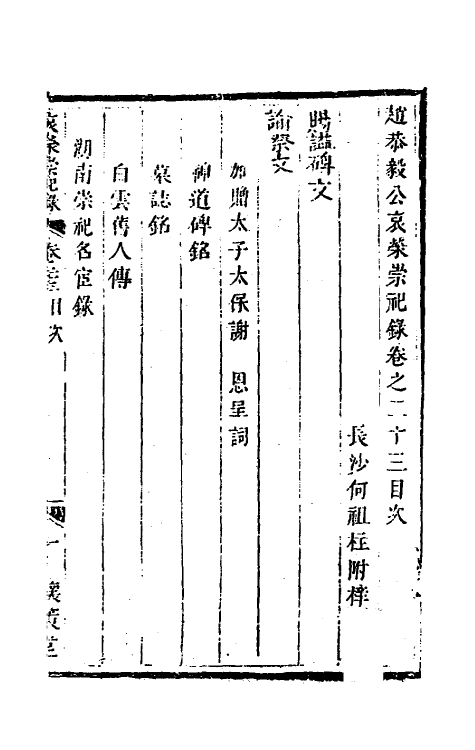 趙恭毅公哀榮崇祀錄卷之二十三目次
長沙何祖柱附梓
賜謚碑文
諭祭文
加贈太子太保謝 恩呈詞
神道碑銘
墓誌銘
白雲舊人傳
湖南崇祀名宦錄
哀榮崇祀錄 卷 目次 一 懷策堂